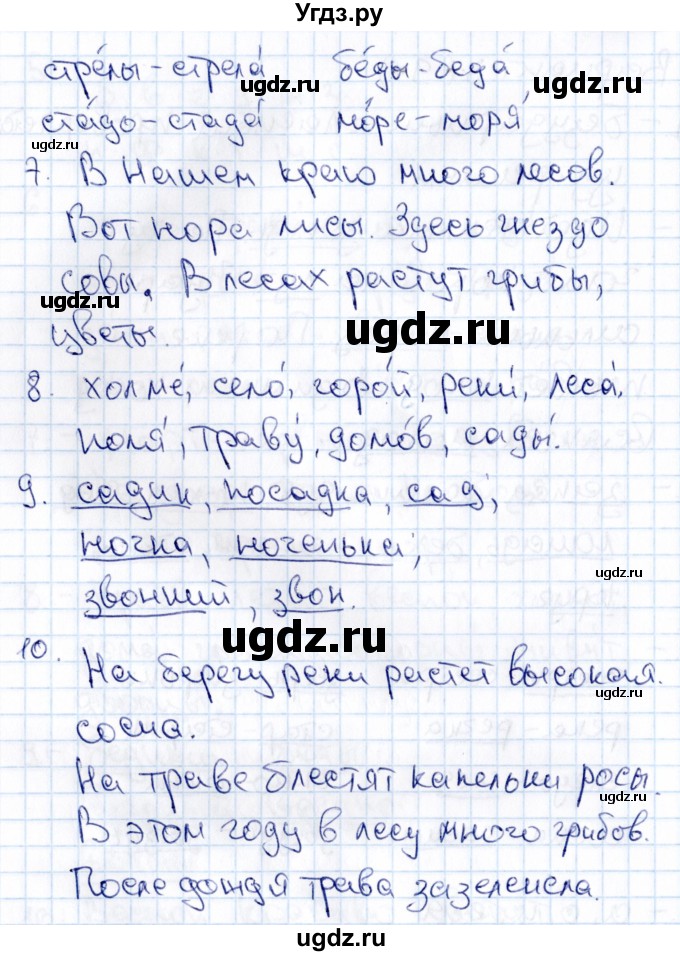 Угдз.ру
стре́лы - стрела́ бе́ды - беда́
ugdz.ru ugdz.ru
ста́до - стада́ мо́ре - моря́
ugdz.ru ugdz.ru
7. В Нашем краю много лесов.
Вот нора лисы. Здесь гнездо
совы. В лесах растут грибы,
ugdz.ru ugdz.ru
цветы.
8. холме́, село́, горо́й, реки́, леса́.
ugdz.ru
поля́, траву́, домо́в, сады́.
9. садик, посадка, сад,
ugdz.ru
ночка, ноченька,
ugdz.ru
звонкий, звон.
ugdz.ru
10. На берегу реки растет высокая.
ugdz.ru
сосна.
На траве блестят капельки росы.
ugdz.ru
В этом году в лесу много грибов.
После дождя трава зазеленела.
ugdz.ru
ugdz.ru